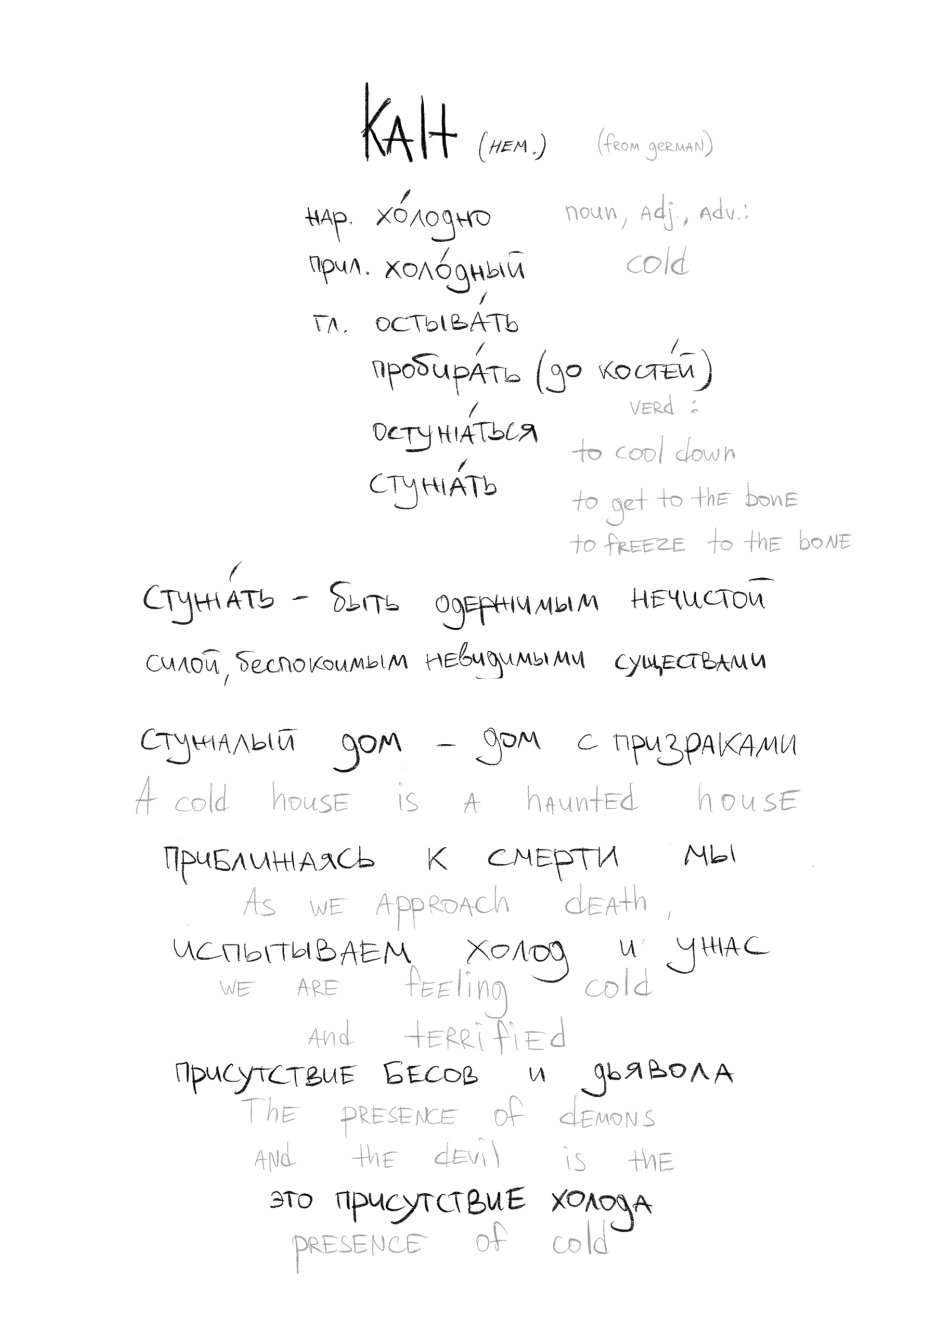 KAlt (НЕМ.) (from gERMAN)
НАР. хо́лодно noun, Adj., Adv.:
прил. холо́дный cold
гл. остыва́ть
пробира́ть (до косте́й)
VERd :
остужа́ться
to cool down
стужа́ть
to get to the bonE
to fREEZE to thE boNE
стужа́ть – быть одержимым нечистой
силой, беспокоимым невидимыми существами
стужалый дом – дом с призраками
A cold housE is A hAuntEd housE
приближаясь к смерти мы
As wE AppROAch dEAth ,
испытываем холод и ужас
wE ARE fEEling cold
And tERRifiEd
присутствие бесов и дьявола
ThE pRESENCE of dEMONS
ANd thE dEvil is thE
это присутствие холода
pRESENCE of cold